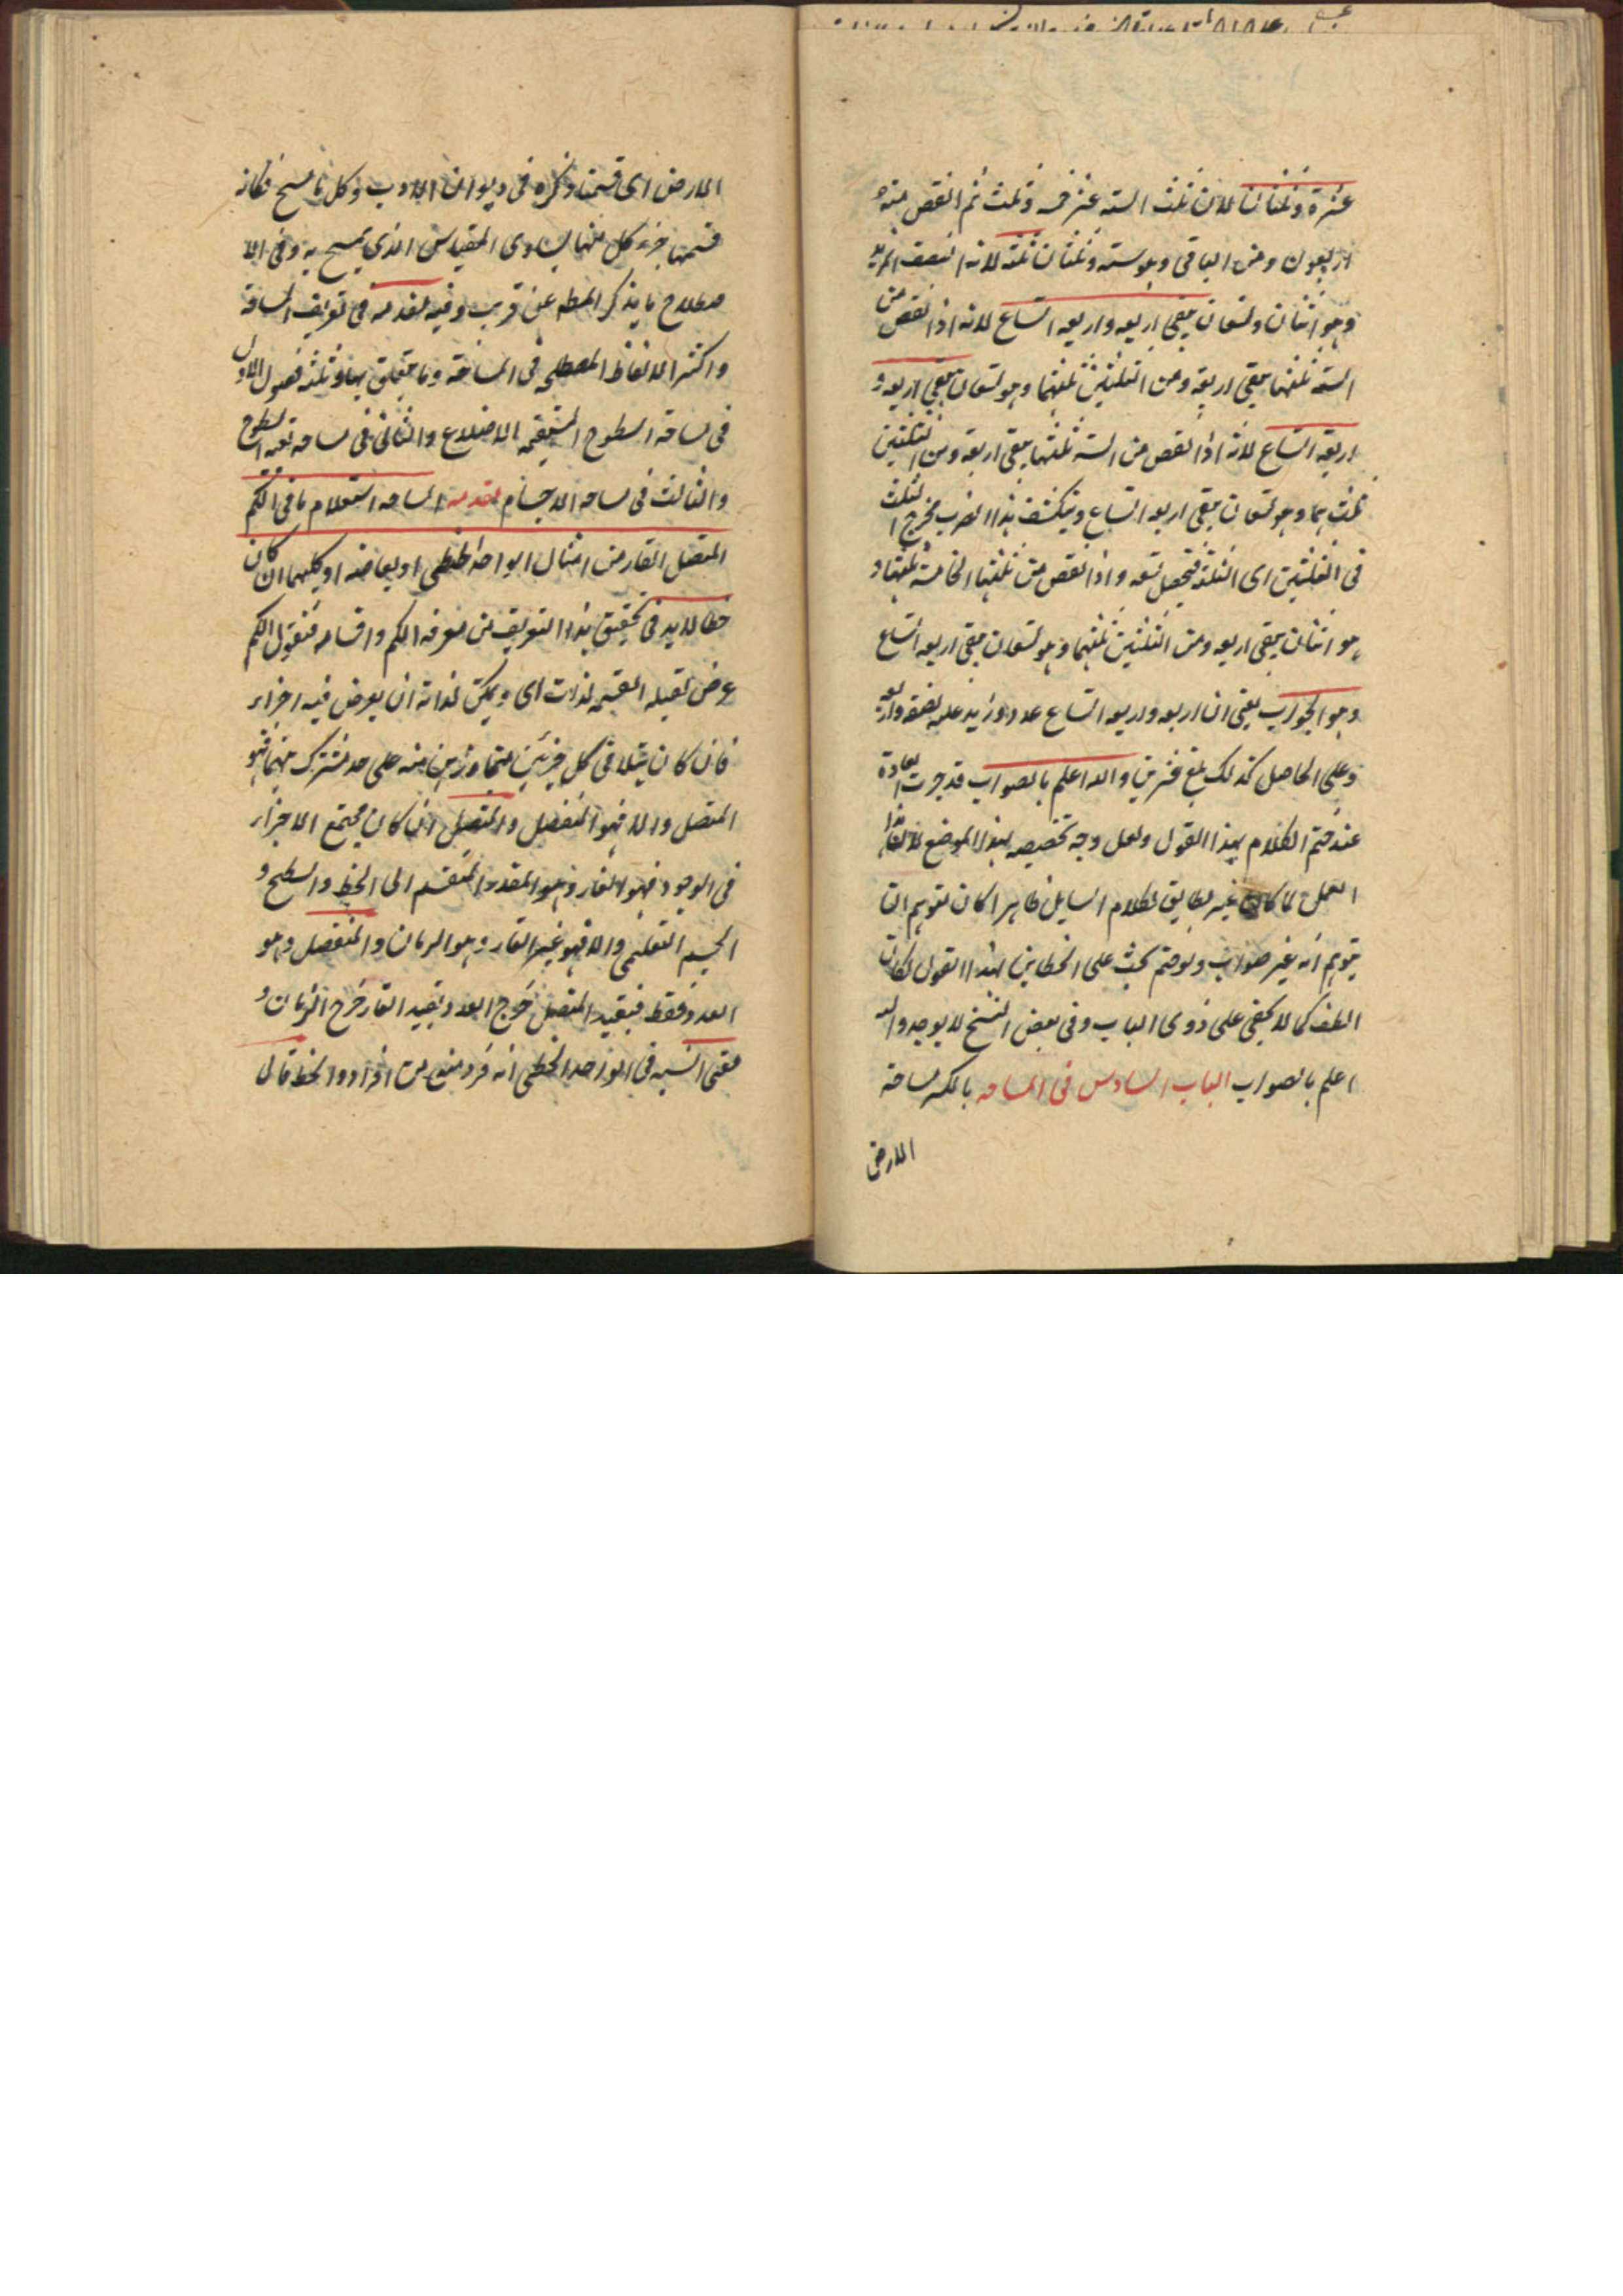 عشرة وثلثان لان ثلث الستة عشر خمسة وثلث ثم انقص منه
اربعون ومن الباقي وهو ستة وثلثان ثلثه لانه
وهو اثنان وتسعان يبقى اربعة واربعة اتساع لانه اذا نقص من
الستة ثلثها يبقى اربعة ومن الثلثين ثلثهما وهو تسعان يبقى اربعة و
اربعة اتساع لانه اذا نقص من الستة ثلثها يبقى اربعة ومن الثلثين
ثلثهما وهو تسعان يبقى اربعة اتساع وينكشف بهذا الضرب مخرج الثلث
في الثلثين اى الثلثة فيحصل تسعة واذا نقص من ثلثها
هو اثنان يبقى اربعة ومن الثلثين ثلثهما وهو تسعان يبقى اربعة اتساع
وهو الجواب يعني ان اربعة واربعة اتساع عدد زيد عليه نصفه واربعة
وعلى الحاصل كذلك بلغ عشرين والله اعلم بالصواب قد جرت العادة
عند ختم الكلام بهذا القول ولعل وجه تخصيصه بهذا الموضع
العمل لما كان غير مطابق لكلام السايل ظاهرا كان
يتوهم انه غير صواب ولو ختم بحث على الخطاين بهذا القول لكان
الطف كما لا يخفى على ذوى الباب وفى بعض النسخ لا يوجد والله
اعلم بالصواب الباب السادس فى المساحه بالكسر مساحة
الارض
الارض اى قسمتا وذكره فى ديوان الادب وكل ما مسح فكانه
قسمتها جزء كل منها يساوى المقياس الذي يمسح به وفى الا
صطلاح ما يذكر المصه عن قريب وفيه مقدمه فى تعريف المساحة
واكثر الالفاظ المصطلحه فى المساحة وما يتعلق بها وثلثة فصول الاول
فى مساحة السطوح المستقيمه الاضلاع والثانى فى مساحه بقيه السطوح
والثالث فى مساحه الاجسام مقدمه المساحه استعلام ما فى الكم
المتصل القار من امثال الواحد الخطى او ابعاضه او كليهما ان كان
خطا لابد فى تحقيق هذا التعريف من معرفه الكم واقسامه فنقول الكم
عرض تقبله القسمه لذات اى يمكن لذاته ان يعرض فيه اجزاء
فان كان يتلاقى كل جزئين متجاورين منه على حد مشترك بينهما فهو
المتصل والا فهو المنفصل والمتصل ان كان مجتمع الاجزاء
فى الوجود فهو القار وهو المقدار المنقسم الى الخط والسطح و
الجسم التعليمى والا فهو غير القار وهو الزمان والمنفصل وهو
العدد فقط فبقيد المتصل خرج العدد وبقيد القار خرج الزمان و
معنى النسبه فى الواحد الخطى انه فرد من افراد الخط قال